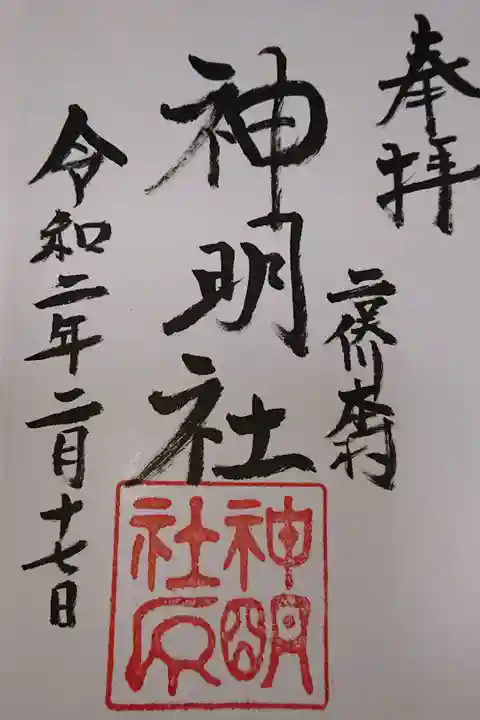 奉拝
二俣川本村
神明社
令和二年二月十七日
神明
社